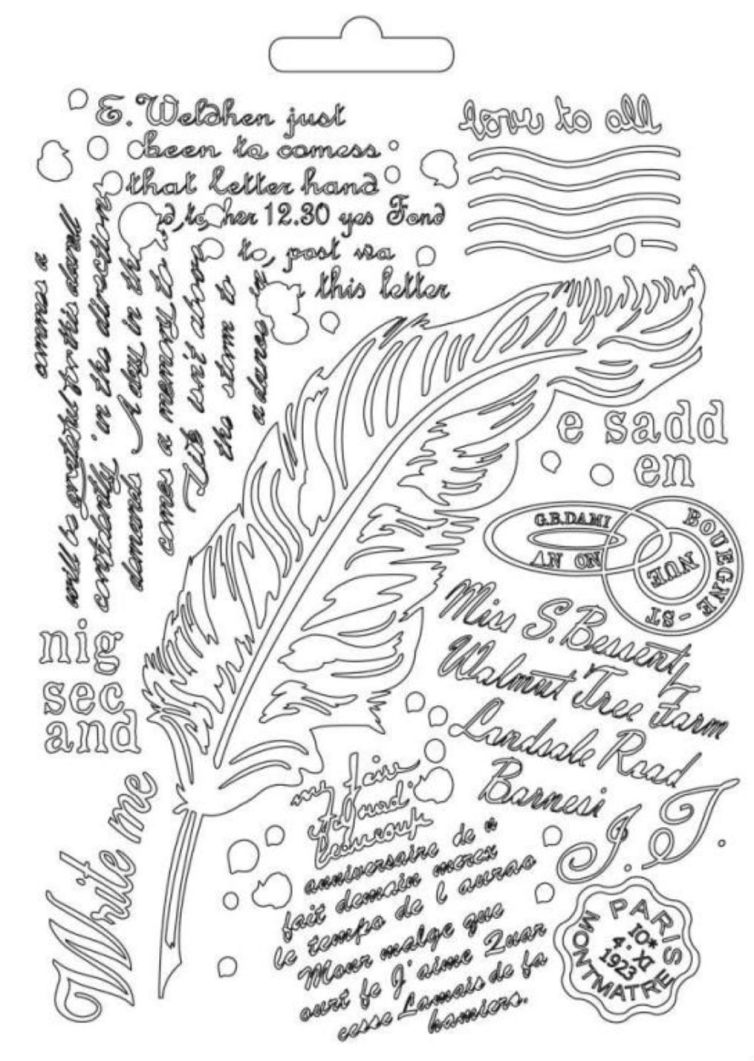 E. Weldhen just
been to comess
that letter hand
her 12.30 yes Fond
to, post via
this letter
love to all
commes a
will be grateful for this darall
contently in the direction
demands A day in the
comes a memory to a
isn't above
the storm to
a dance in
e sadd
en
G.B.DAMI
ON
BOUEGNE - ST
NUE
Miss S. Bessent,
Walmut Tree Farm
Landsale Road
Barnesi
J. T.
nig
sec
and
Write me
my faire
beaucoup
anniversaire de
fait demain morex
le tempo de l aurao
Mour malge que
ourt fe J'aime Quar
cesse Lamais de fa
hamiers.
PARIS
10*
4. XI
1923
MONTMATRE